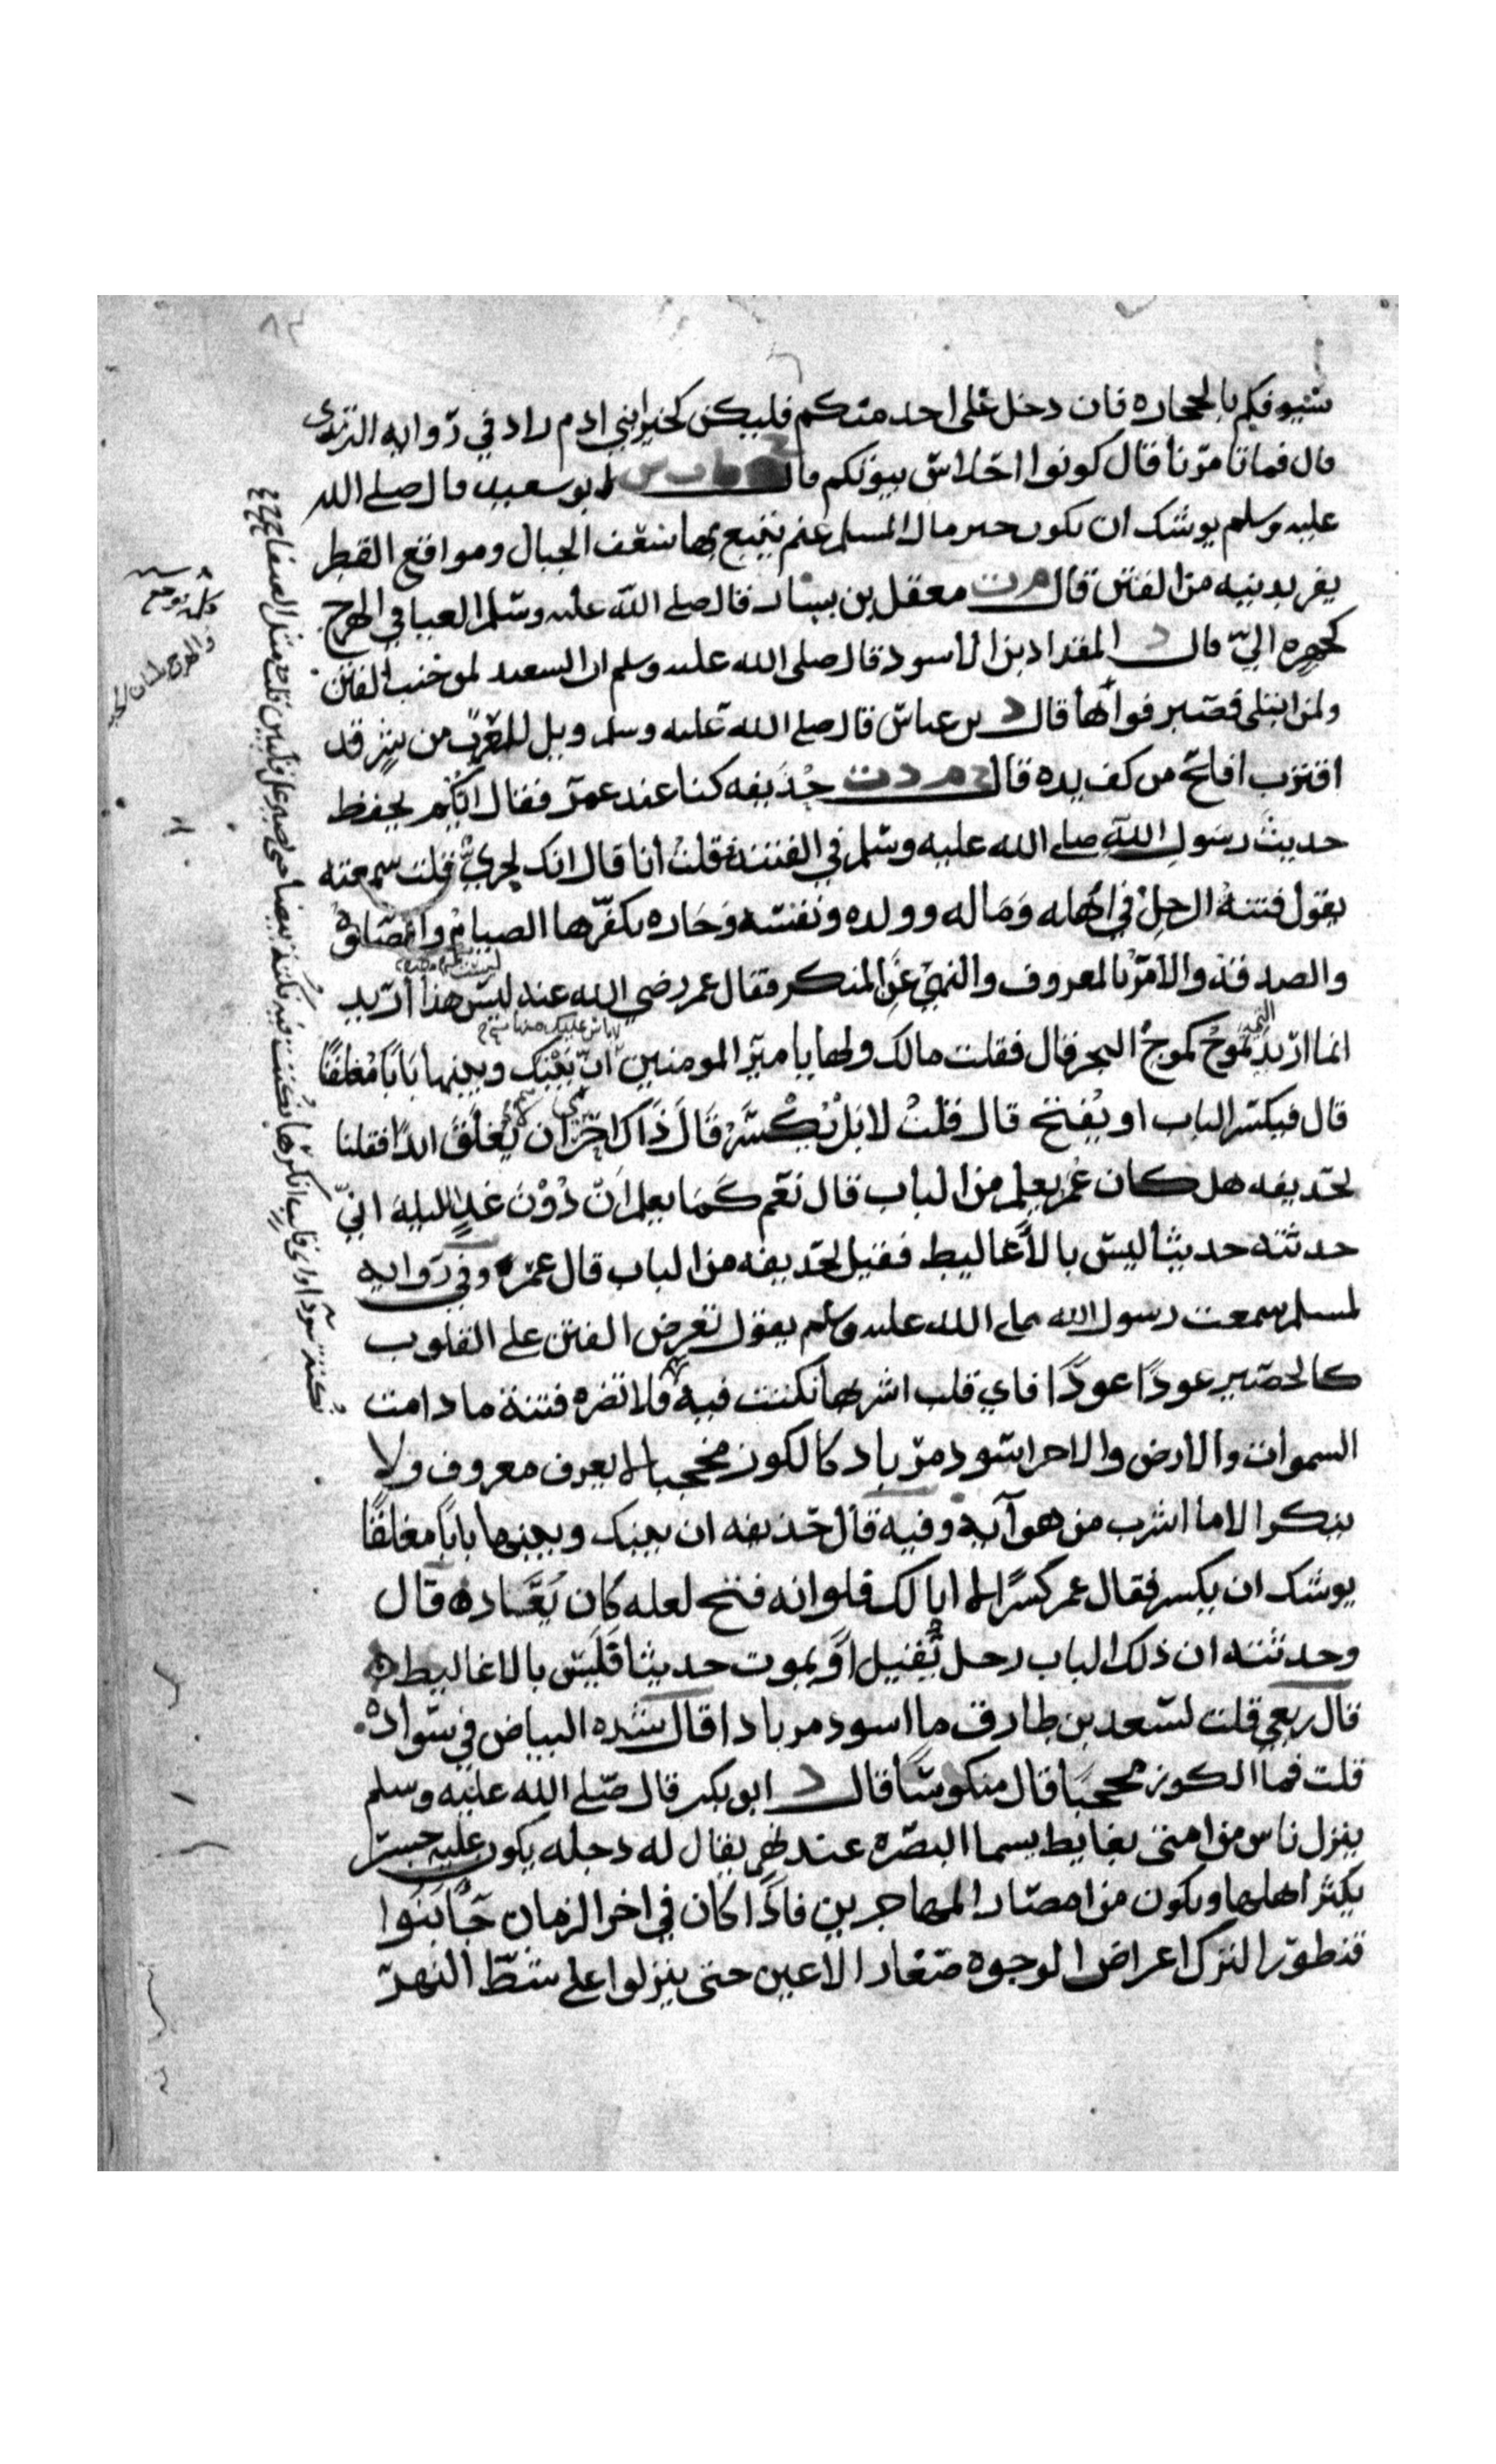 سيوفكم بالحجاره فان دخل على احد منكم فليكن كخير ابني ادم زاد في روايه الترمذي
قال فما تامرنا قال كونوا احلاس بيوتكم قال ابو سعيد قال صلى الله
عليه وسلم يوشك ان يكون خير مال المسلم غنم يتبع بها شعف الجبال ومواقع القطر
يفر بدينه من الفتن قال م ت معقل بن يسار قال صلى الله عليه وسلم العباده في الهرج
كهجره الي قال د المقداد بن الاسود قال صلى الله عليه وسلم ان السعيد لمن جنب الفتن
ولمن ابتلى فصبر فواها قال د بن عباس قال صلى الله عليه وسلم ويل للعرب من شر قد
اقترب افلح من كف يده قال خ م د ت حذيفه كنا عند عمر فقال ايكم يحفظ
حديث رسول الله صلى الله عليه وسلم في الفتنه فقلت انا قال انك لجري فقلت سمعته
يقول فتنة الرجل في اهله وماله وولده ونفسه وجاره يكفرها الصيام والصلوة
والصدقة والامر بالمعروف والنهي عن المنكر فقال عمر رضي الله عنه ليس هذا اريد
انما اريد التي تموج كموج البحر قال فقلت مالك ولها يا امير المومنين ان بينك وبينها بابا مغلقا
ليس عليك منها
قال فيكسر الباب او يفتح قال قلت لا بل يكسر قال ذاك احرى ان لا يغلق ابدا فقلنا
لحذيفه هل كان عمر يعلم من الباب قال نعم كما يعلم ان دون غد الليلة اني
حدثته حديثا ليس بالاغاليط فقيل لحذيفه من الباب قال عمر وفي روايه
لمسلم سمعت رسول الله صلى الله عليه وسلم يقول تعرض الفتن على القلوب
كالحصير عودا عودا فاي قلب اشربها نكتت فيه فلا تضره فتنة ما دامت
السموات والارض والاخر اسود مرباد كالكوز مجخيا لا يعرف معروف ولا
ينكر الا ما اشرب من هوآيه وفيه قال حذيفه ان بينك وبينها بابا مغلقا
يوشك ان يكسر فقال عمر كسرا لا ابا لك فلو انه فتح لعله كان يعاد ه قال
وحدثته ان ذلك الباب رجل يقتل او يموت حديثا فليس بالاغاليط ه
قال ربعي قلت لسعد بن طارق ما اسود مربادا قال شده البياض في سواد ه
قلت فما الكوز مجخيا قال منكوسا قال د ابو بكر قال صلى الله عليه وسلم
ينزل ناس من امتي بغايط يسما البصره عند نهر يقال له دجله يكون عليه جسر
يكثر اهلها ويكون من امصار المهاجرين فاذا كان في اخر الزمان جا بنوا
قنطورا الترك اعراض الوجوه صغار الاعين حتى ينزلوا على شط النهر
نكتة سودا واي قلب انكرها نكتت فيه نكتة بيضا حتى تصير على قلبين قلب مثل الصفا